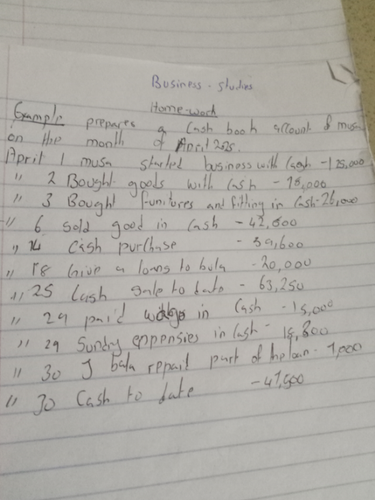 Business - studies
Home-work
Example prepares a Cash book account of musa
on the month of April 2025.
April 1 musa started business with Cash - 125,000
" 2 Bought goods with Cash - 78,000
" 3 Bought furnitures and fitting in Cash - 26,000
" 6 Sold good in Cash - 42,800
" 14 Cash purchase - 39,600
" 18 Give a loans to bala - 20,000
" 25 Cash sale to date - 63,250
" 29 paid wage in Cash - 15,000
" 29 Sundry expensies in Cash - 18,800
" 30 J bala repait part of the loan - 7,000
" 30 Cash to date - 47,500